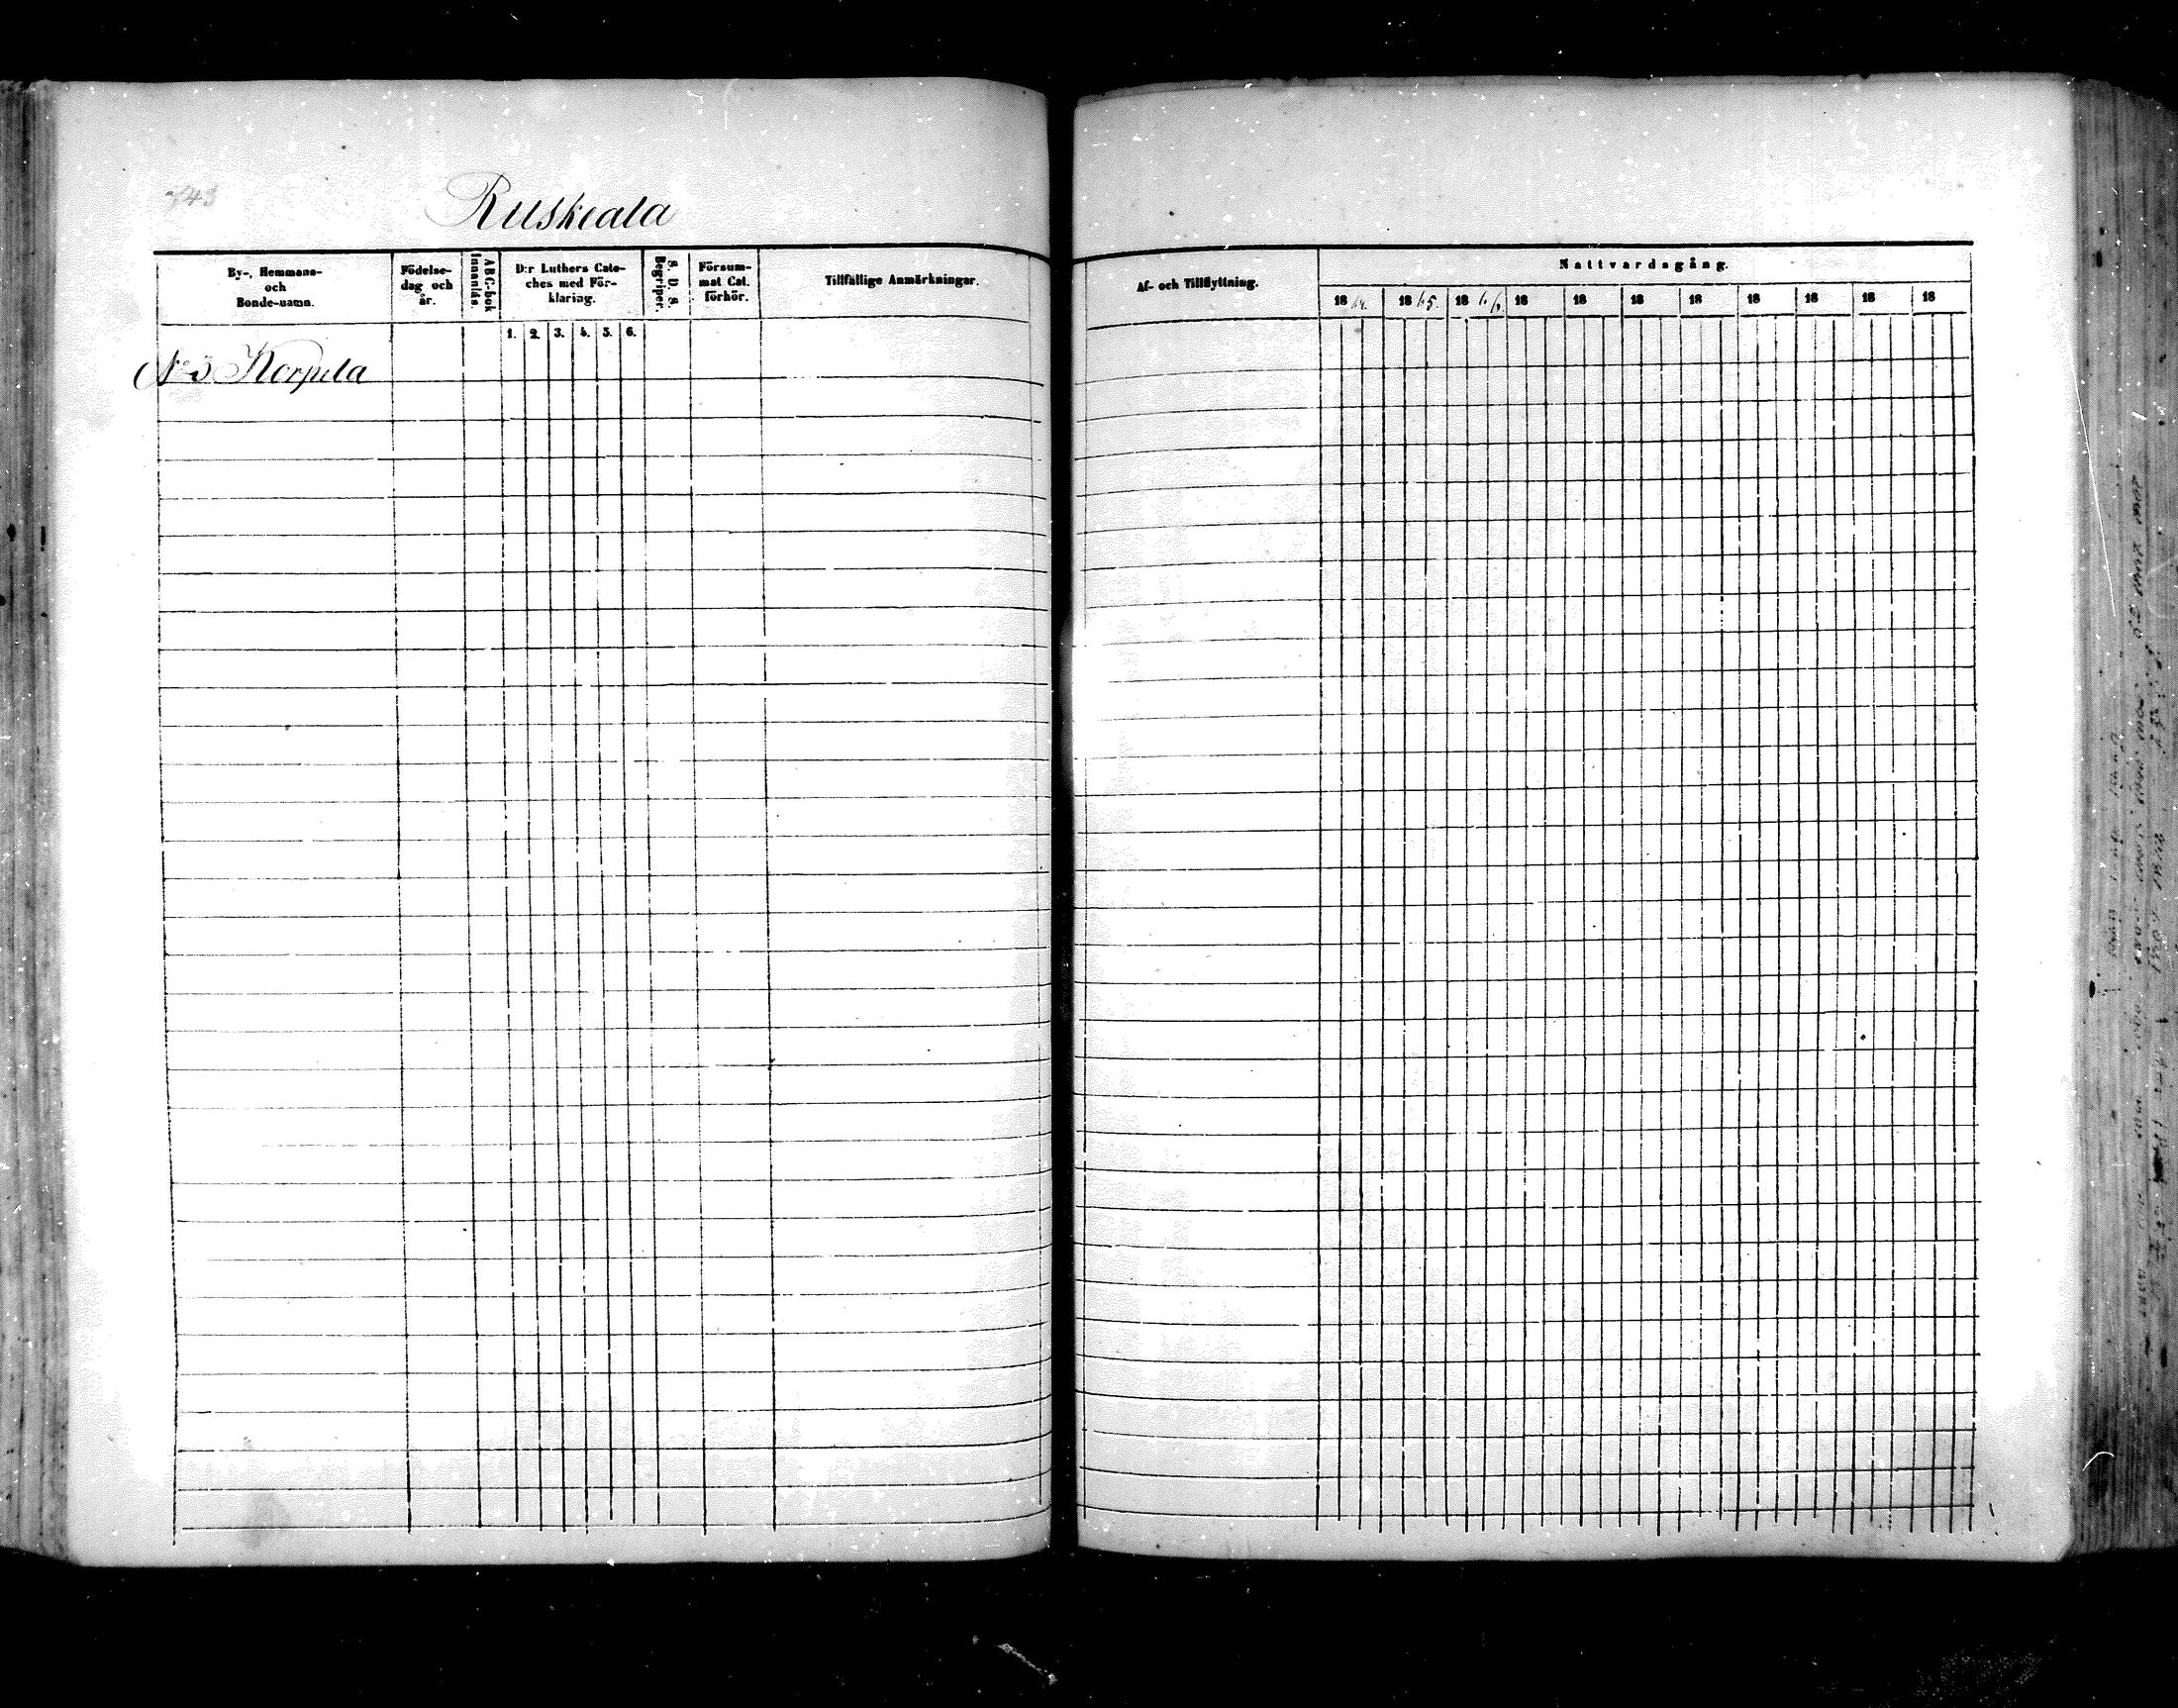 743
Ruskeala
By-, Hemmans-
och
Bonde-namn.
Födelse-
dag och
år.
ABC-bok
Innanläs.
D:r Luthers Cate-
ches med För-
klaring.
1. 2. 3. 4. 5. 6.
S. D. S.
Begriper.
Försum-
mat Cat.
förhör.
Tillfällige Anmärkningar.
Af- och Tillflyttning.
Nattvardsgång.
1864. 1865. 1866 18 18 18 18 18 18 18 18
No 3 Korpela